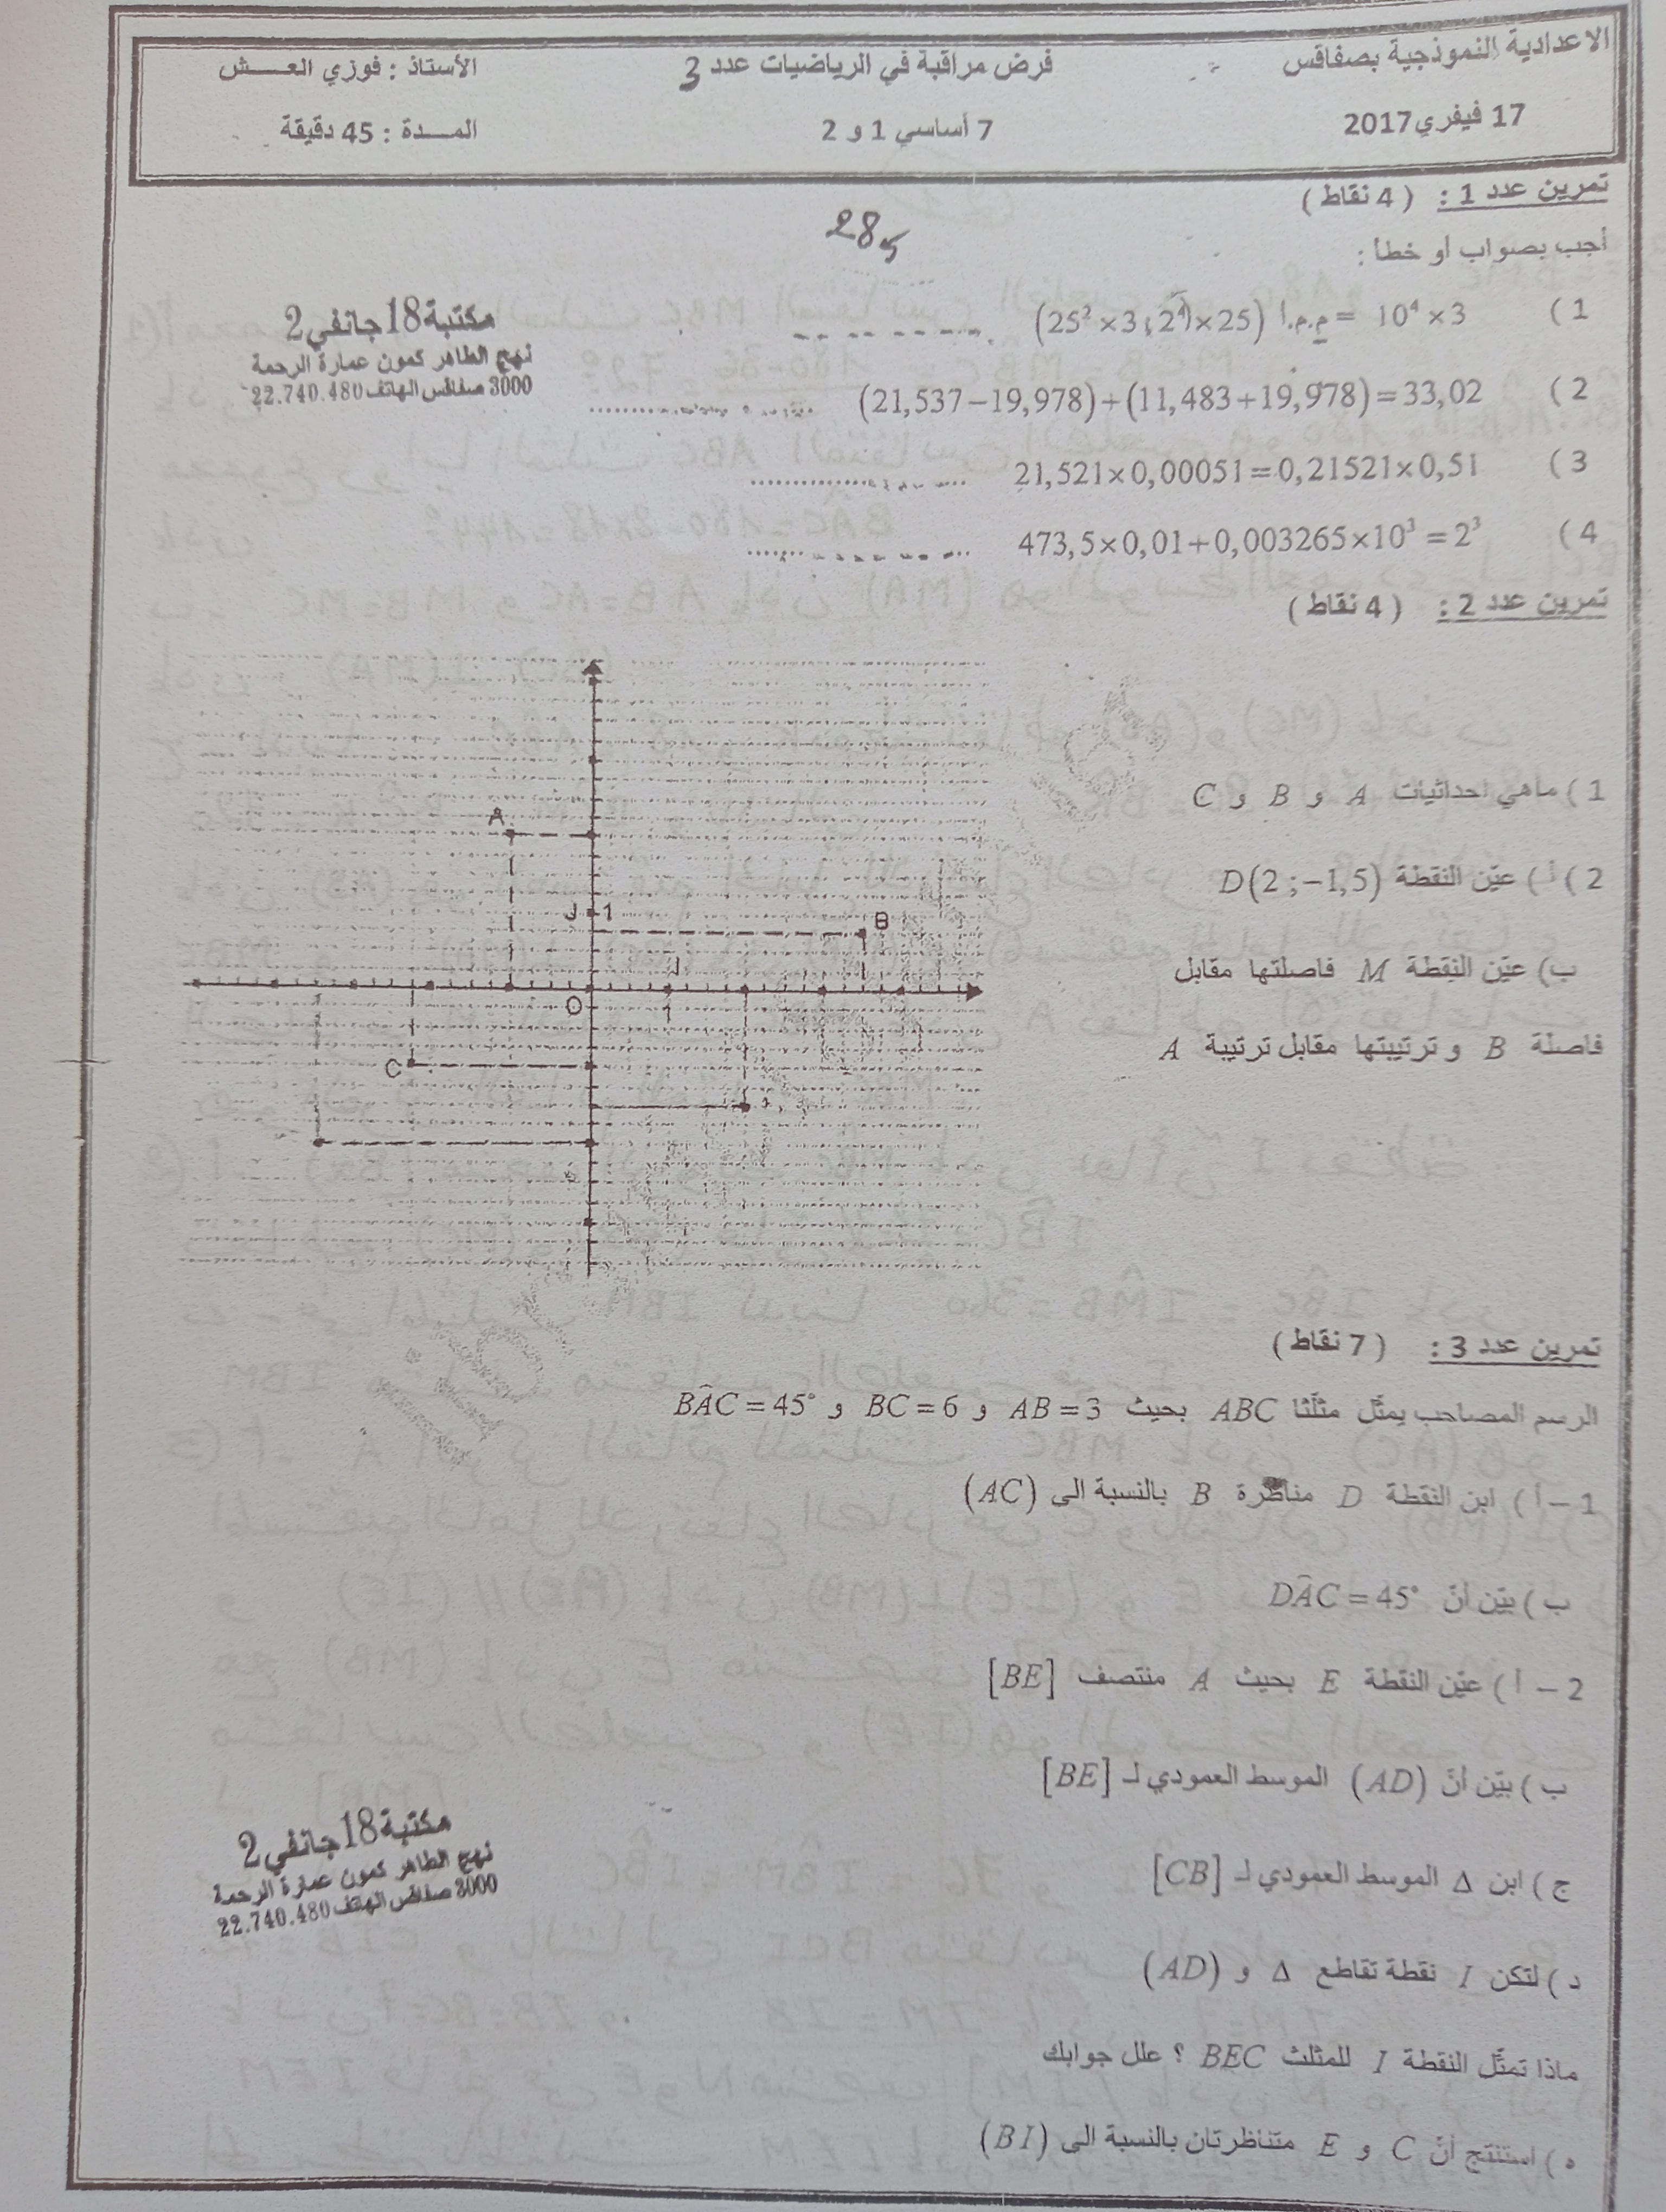 الاعدادية النموذجية بصفاقس
فرض مراقبة في الرياضيات عدد 3
الأستاذ : فوزي العـــش
17 فيفري 2017
7 أساسي 1 و 2
المـــدة : 45 دقيقة
تمرين عدد 1 : ( 4 نقاط )
28,5
أجب بصواب أو خطأ :
1 ) (25² ×3 ; 2⁴ ×25) م.م.أ = 10⁴ ×3
2 ) (21,537−19,978)+(11,483+19,978)=33,02
3 ) 21,521×0,00051=0,21521×0,51
4 ) 473,5×0,01+0,003265×10³ = 2³
مكتبة 18 جانفي 2
نهج الطاهر كمون عمارة الرحمة
3000 صفاقس الهاتف 22.740.480
تمرين عدد 2 : ( 4 نقاط )
A
J 1
B
I
O
C
1 ) ماهي احداثيات A و B و C
2 ) أ ) عيّن النقطة D(2 ;−1,5)
ب) عيّن النقطة M فاصلتها مقابل
فاصلة B و ترتيبتها مقابل ترتيبة A
تمرين عدد 3 : ( 7 نقاط )
الرسم المصاحب يمثّل مثلّثا ABC بحيث AB = 3 و BC = 6 و BÂC = 45°
1 – أ ) ابن النقطة D مناظرة B بالنسبة الى (AC)
ب ) بيّن أنّ DÂC = 45°
2 – أ ) عيّن النقطة E بحيث A منتصف [BE]
ب ) بيّن أنّ (AD) الموسط العمودي لـ [BE]
ج ) ابن Δ الموسط العمودي لـ [CB]
د ) لتكن I نقطة تقاطع Δ و (AD)
ماذا تمثّل النقطة I للمثلث BEC ؟ علل جوابك
ه ) استنتج أنّ C و E متناظرتان بالنسبة الى (BI)
مكتبة 18 جانفي 2
نهج الطاهر كمون عمارة الرحمة
3000 صفاقس الهاتف 22.740.480